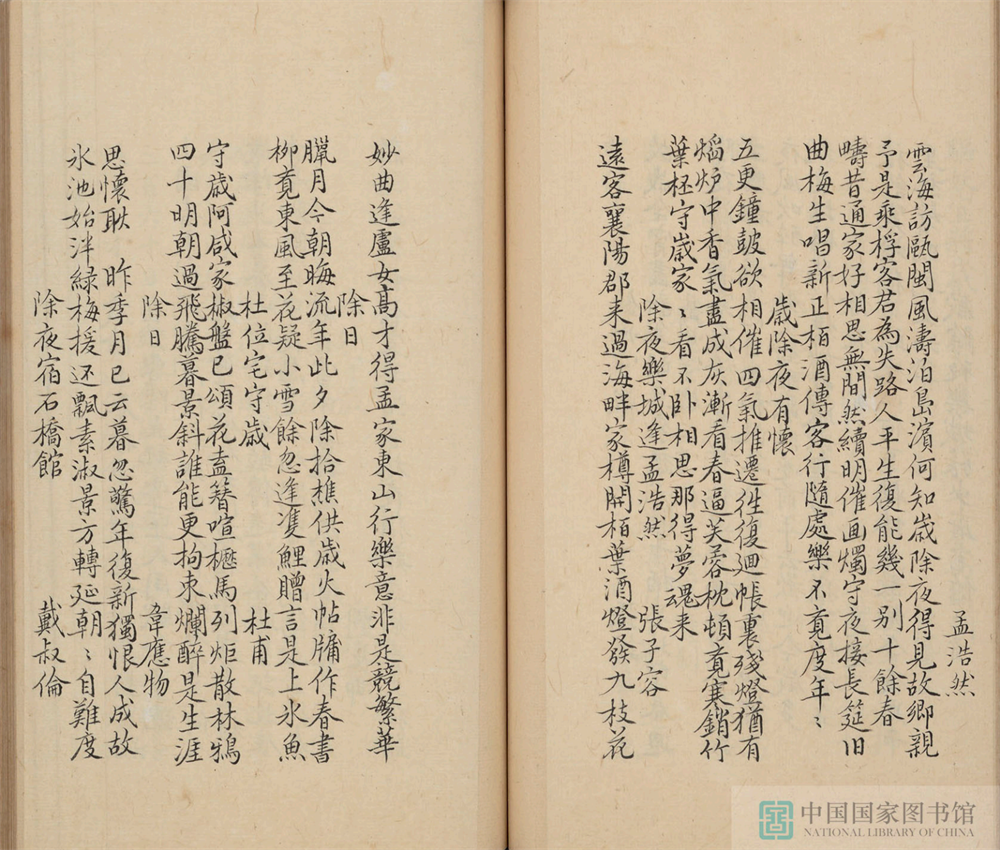 孟浩然
雲海訪甌閩風濤泊島濱何知歲除夜得見故鄉親
予是乘桴客君為失路人平生復能幾一别十餘春
疇昔通家好相思無間然續明催画燭守夜接長筵旧
曲梅生唱新正栢酒傳客行隨處樂不覔度年〻
歲除夜有懷
五更鐘鼓欲相催四氣推遷徃復迴帳裏殘燈猶有
熖炉中香氣盡成灰漸看春逼芙蓉枕頓覔寒銷竹
葉杯守歲家〻看不卧相思那得夢魂来
除夜樂城逢孟浩然 張子容
逺客襄陽郡来過海畔家樽開栢葉酒燈發九枝花
妙曲逢盧女高才得孟家東山行樂意非是競繁華
除日
臘月今朝晦流年此夕除拾樵供歲火帖牖作春書
柳覔東風至花疑小雪餘忽逢䨇鯉贈言是上氷魚
杜位宅守歲 杜甫
守歲阿咸家椒盤已頌花盍簪喧櫪馬列炬散林鴉
四十明朝過飛騰暮景斜誰能更拘束爛醉是生涯
除日 韋應物
思懷耿昨季月已云暮忽驚年復新獨恨人成故
氷池始泮緑梅援还飄素淑景方轉延朝〻自難度
除夜宿石橋館 戴叔倫
中国国家图书馆
NATIONAL LIBRARY OF CHINA